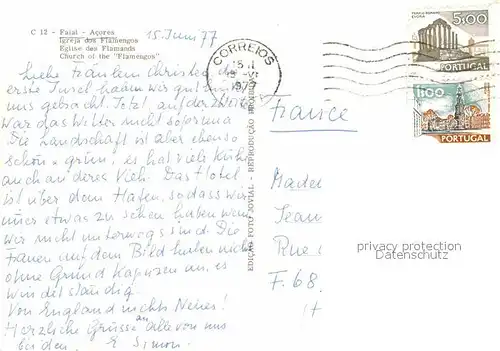 C 12 - Faial - Açores
Igreja dos Flamengos
Eglise des Flamands
Church of the "Flamengos"
15. Juni 77
Liebe Fräulein Christel, die
erste Insel haben wir gut hinter
uns gebracht. Jetzt, auf der zweiten
war das Wetter nicht so prima
Die Landschaft ist aber ebenso
schön + grün, es hat viele Kühe
auch anderes Vieh. Das Hotel
ist über dem Hafen, sodass wir
immer etwas zu sehen haben wenn
wir nicht unterwegs sind. Die
Frauen auf dem Bild haben nicht
ohne Grund Kapuzen an, es
windet ständig.
Von England nichts Neues!
Herzliche Grüsse an alle von uns
beiden E. Simon
EDIÇÃO FOTO JOVIAL - REPRODUÇÃO
CORREIOS
1977
TEMPLO ROMANO
EVORA
5$00
PORTUGAL
1$00
PORTUGAL
France
Jean
Rue
F. 68
privacy protection
Datenschutz